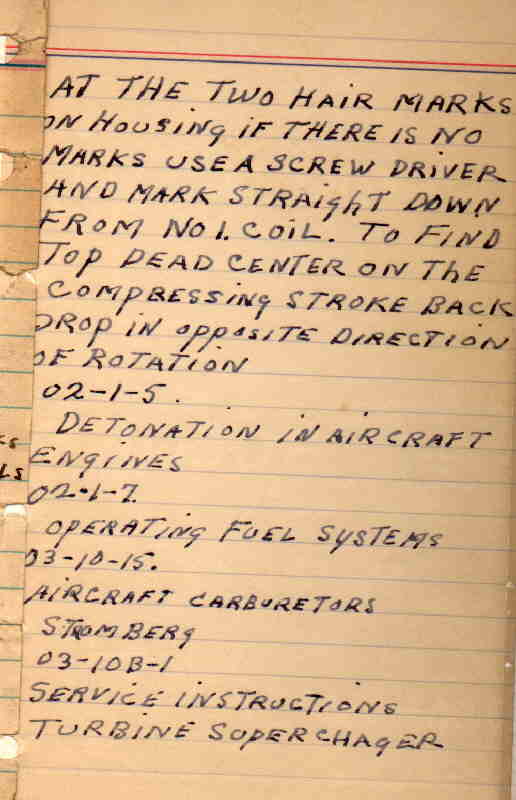 AT THE TWO HAIR MARKS
ON HOUSING IF THERE IS NO
MARKS USE A SCREW DRIVER
AND MARK STRAIGHT DOWN
FROM NO 1. COIL. TO FIND
TOP DEAD CENTER ON THE
COMPRESSING STROKE BACK
PROP IN OPPOSITE DIRECTION
OF ROTATION
02-1-5.
DETONATION IN AIRCRAFT
ENGINES
02-1-7.
OPERATING FUEL SYSTEMS
03-10-15.
AIRCRAFT CARBURETORS
STROMBERG
03-10B-1
SERVICE INSTRUCTIONS
TURBINE SUPERCHAGER